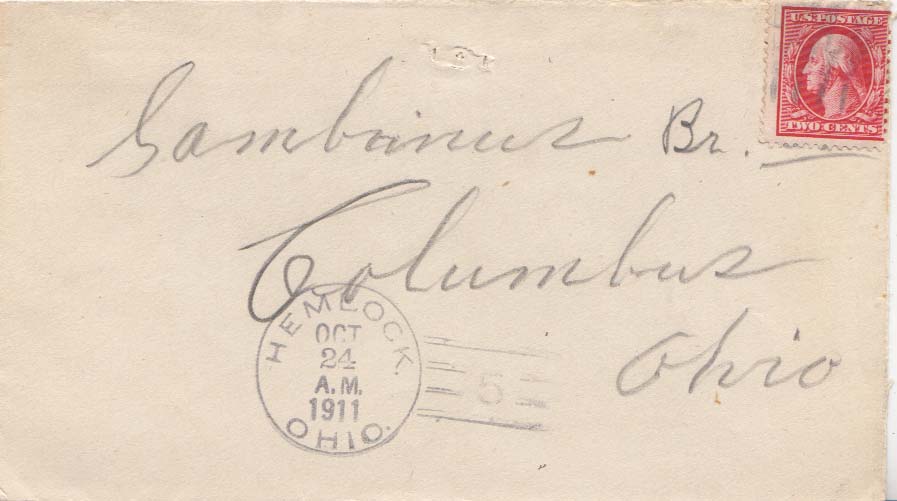 U.S. POSTAGE
TWO CENTS
Gambrinus Br.
Columbus
Ohio
HEMLOCK.
OCT
24
A.M.
1911
OHIO.
5